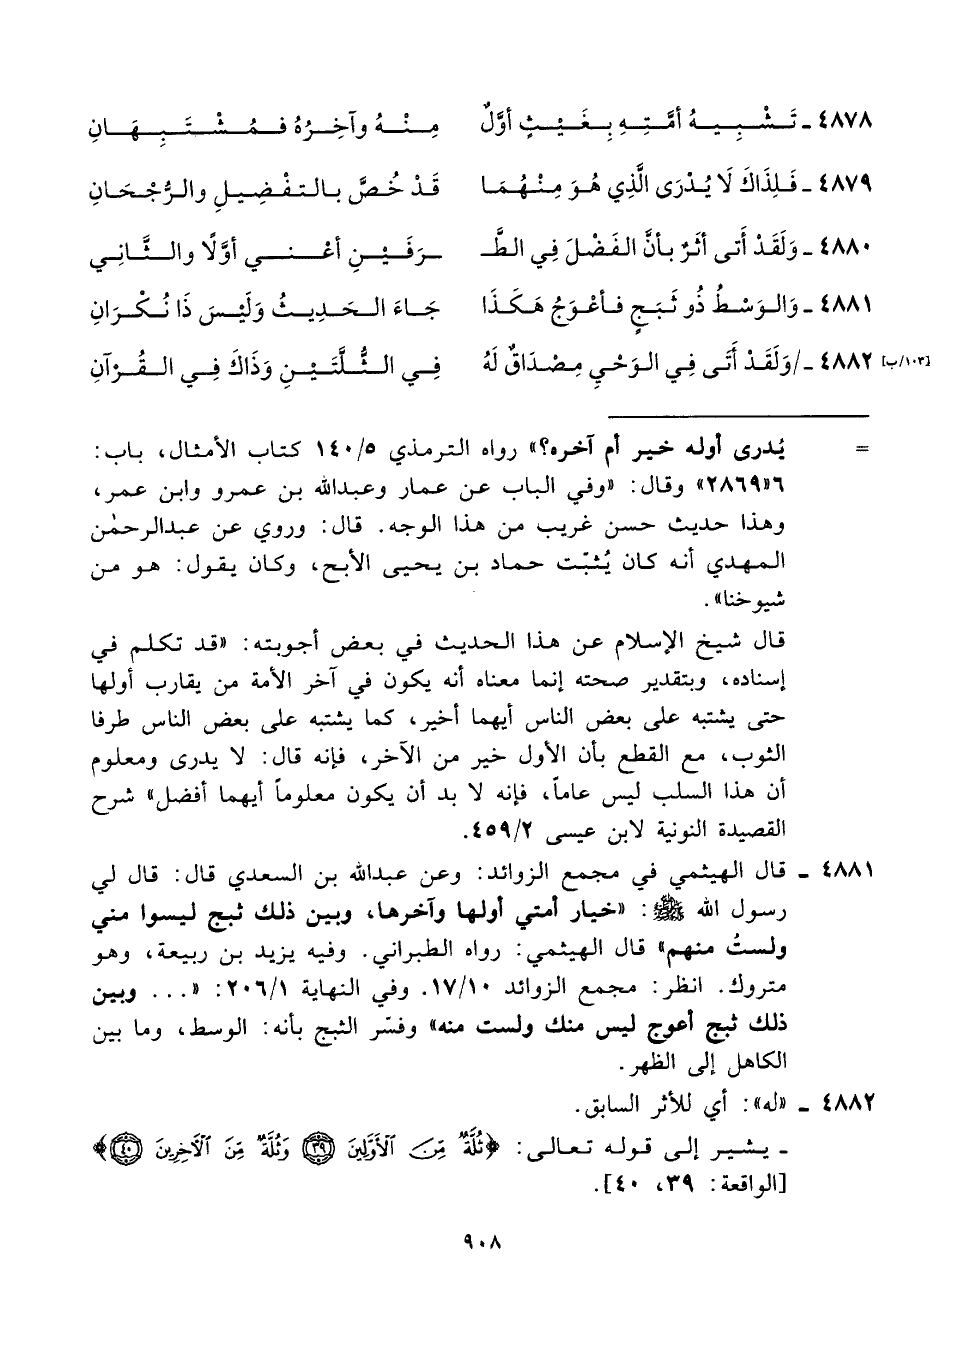 ٤٨٧٨ ـ تَـشْـبِـيـهُ أمَّـتِـهِ بِـغَـيْـثٍ أوَّلٌ مِـنْـهُ وآخِـرُهُ فـمُـشْـتَـبِـهَـانِ
٤٨٧٩ ـ فَـلِذَاكَ لَا يُـدْرَى الَّذِي هُـوَ مِـنْـهُـمَـا قَـدْ خُـصَّ بـالـتـفْـضِـيلِ والرُّجْـحَـانِ
٤٨٨٠ ـ وَلَقَـدْ أَتى أثَرٌ بـأنَّ الـفَـضْـلَ فِـي الطَّـ ـرَفَـيْـنِ أعْـنـي أوَّلًا والـثَّـانِـي
٤٨٨١ ـ وَالـوَسْـطُ ذُو ثَـبَـجٍ فـأعْـوَجُ هَـكَـذَا جَـاءَ الـحَـدِيـثُ وَلَيْـسَ ذَا نُـكْـرَانِ
٤٨٨٢ ـ /وَلَقَـدْ أَتَـى فِـي الـوَحْيِ مِـصْـدَاقٌ لَهُ فِـي الـثُّـلَّتَـيْـنِ وَذَاكَ فِـي الـقُـرْآنِ [١٠٣/ب]
= يُدرى أوله خير أم آخره؟» رواه الترمذي ١٤٠/٥ كتاب الأمثال، باب:
٦«٢٨٦٩» وقال: «وفي الباب عن عمار وعبدالله بن عمرو وابن عمر،
وهذا حديث حسن غريب من هذا الوجه. قال: وروي عن عبدالرحمٰن
المهدي أنه كان يُثبّت حماد بن يحيى الأبح، وكان يقول: هو من
شيوخنا».
قال شيخ الإسلام عن هذا الحديث في بعض أجوبته: «قد تكلم في
إسناده، وبتقدير صحته إنما معناه أنه يكون في آخر الأمة من يقارب أولها
حتى يشتبه على بعض الناس أيهما أخير، كما يشتبه على بعض الناس طرفا
الثوب، مع القطع بأن الأول خير من الآخر، فإنه قال: لا يدرى ومعلوم
أن هذا السلب ليس عاماً، فإنه لا بد أن يكون معلوماً أيهما أفضل» شرح
القصيدة النونية لابن عيسى ٤٥٩/٢.
٤٨٨١ ـ قال الهيثمي في مجمع الزوائد: وعن عبدالله بن السعدي قال: قال لي
رسول الله ﷺ: «خيار أمتي أولها وآخرها، وبين ذلك ثبج ليسوا مني
ولستُ منهم» قال الهيثمي: رواه الطبراني. وفيه يزيد بن ربيعة، وهو
متروك. انظر: مجمع الزوائد ١٧/١٠. وفي النهاية ٢٠٦/١: «... وبين
ذلك ثبج أعوج ليس منك ولست منه» وفسّر الثبج بأنه: الوسط، وما بين
الكاهل إلى الظهر.
٤٨٨٢ ـ «له»: أي للأثر السابق.
ـ يشير إلى قوله تعالى: ﴿ثُلَّةٌ مِّنَ ٱلْأَوَّلِينَ ٣٩ وَثُلَّةٌ مِّنَ ٱلْأَخِرِينَ ٤٠﴾
[الواقعة: ٣٩، ٤٠].
٩٠٨